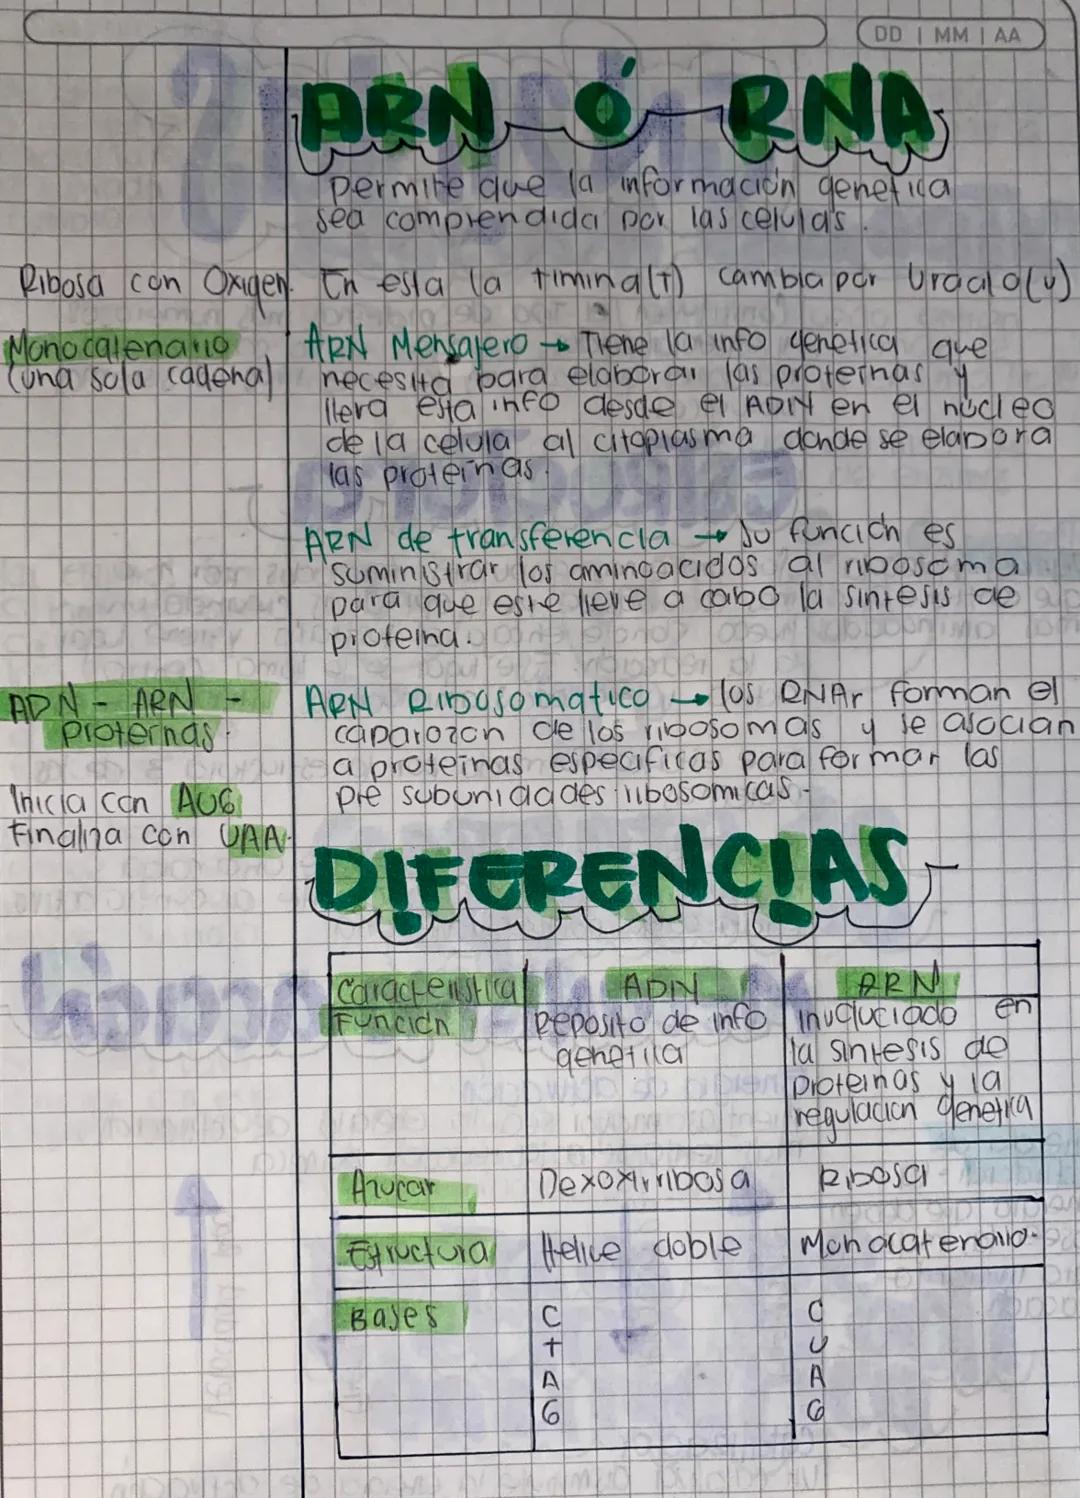 DD | MM | AA
ARN Ó RNA
permite que la información genetica
sea comprendida por las celulas.
Ribosa con Oxigen.
En esta la timina(T) cambia por Uracilo(U)
Monocatenario
(una sola cadena)
ARN Mensajero → Tiene la info genética que
necesita para elaborar las proteínas y
lleva esta info desde el ADN en el núcleo
de la celula al citoplasma donde se elabora
las proteínas.
ARN de transferencia → Su función es
suministrar los aminoacidos al ribosoma
para que este lleve a cabo la sintesis de
proteina.
ADN - ARN -
Proteinas.
ARN Ribosomatico → los RNAr forman el
caparozon de los ribosomas y se asocian
a proteínas especificas para formar las
pre subunidades ribosomicas.
Inicia con AUG
Finaliza con UAA.
DIFERENCIAS
Característica ADN ARN
Función
Deposito de info
genetica
involuciado en
la sintesis de
proteinas y la
regulación genetica
Azucar Dexoxirribosa Ribosa
Estructura Helice doble Monocatenario.
Bases
C
T
A
G
C
U
A
G